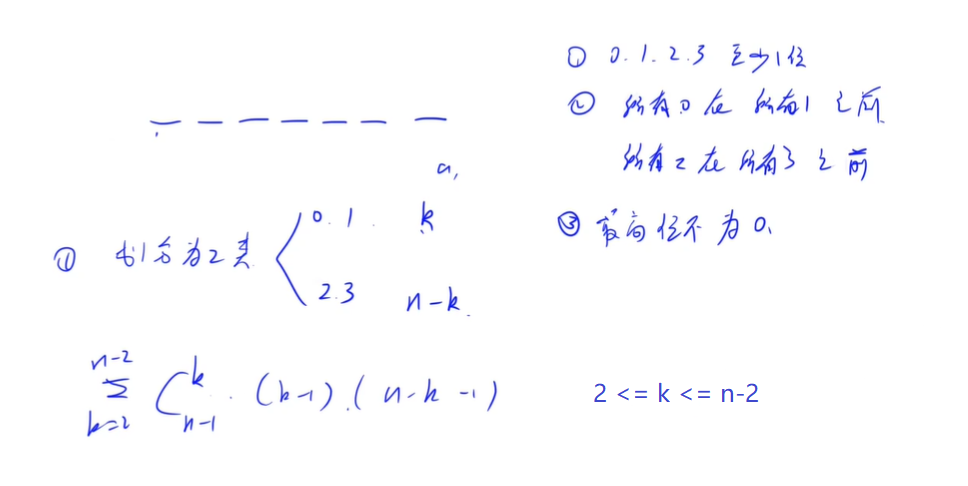 ① 0.1.2.3 至少1位
② 所有0在所有1之前
所有2在所有3之前
③ 最高位不为0.
a,
① 划分为2类
0.1. k
2.3 n-k.
n-2
∑ C k n-1 . (k-1).( n-k-1)
k=2
2 <= k <= n-2